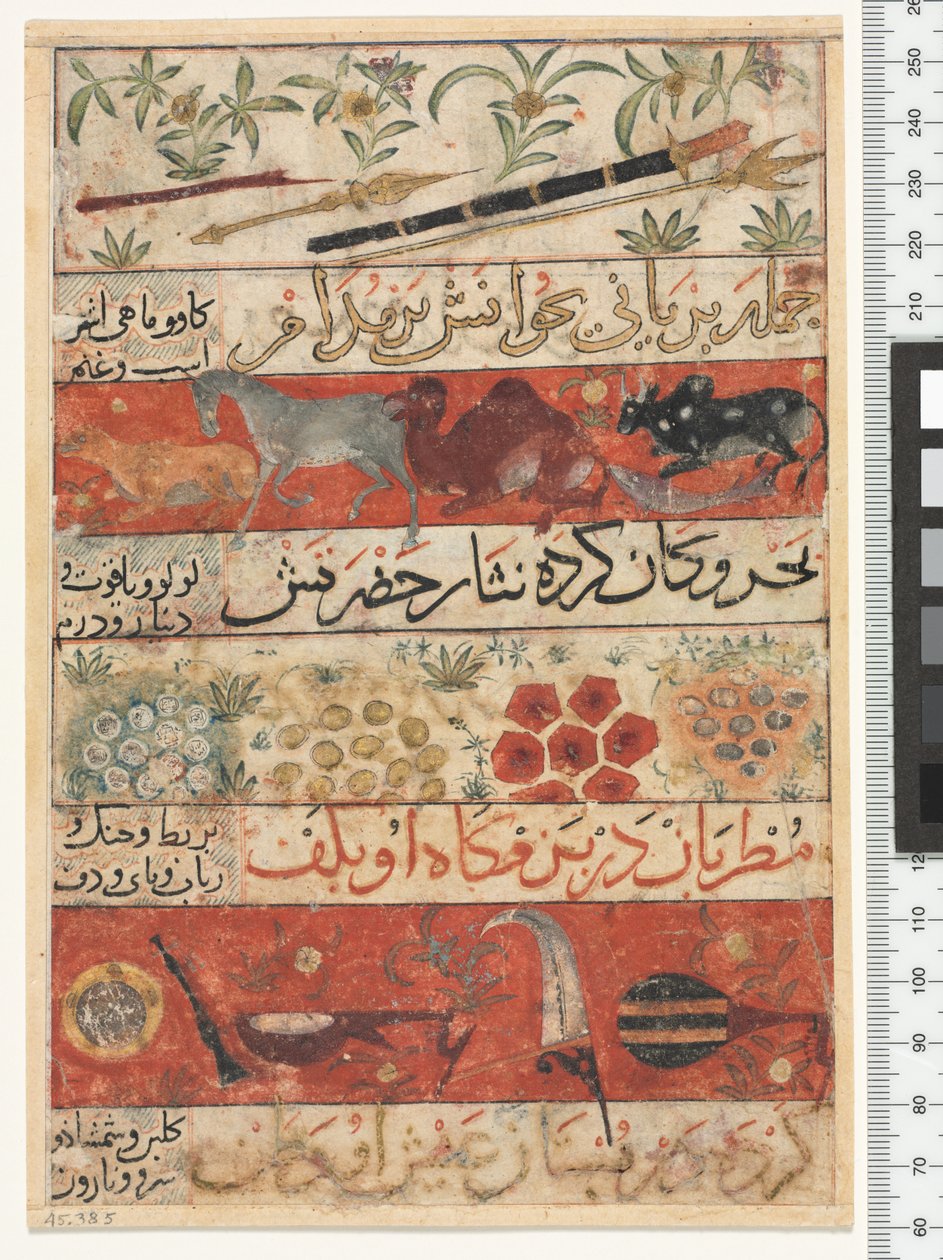 جمله بریانی بخوانش بر مدام
کاو و ماهی اشتر
اسب و غنم
بحر و کان کرده نثار حضرتش
لولو و یاقوت و
دینار و درم
مطربان در بزمکاه او بکف
بربط و چنک و
رباب و نای و دف
کرده در بستان عیش او وطن
کلبن و شمشاد و
سرو و نارون
45.385
250
240
230
220
210
110
100
90
80
70
60